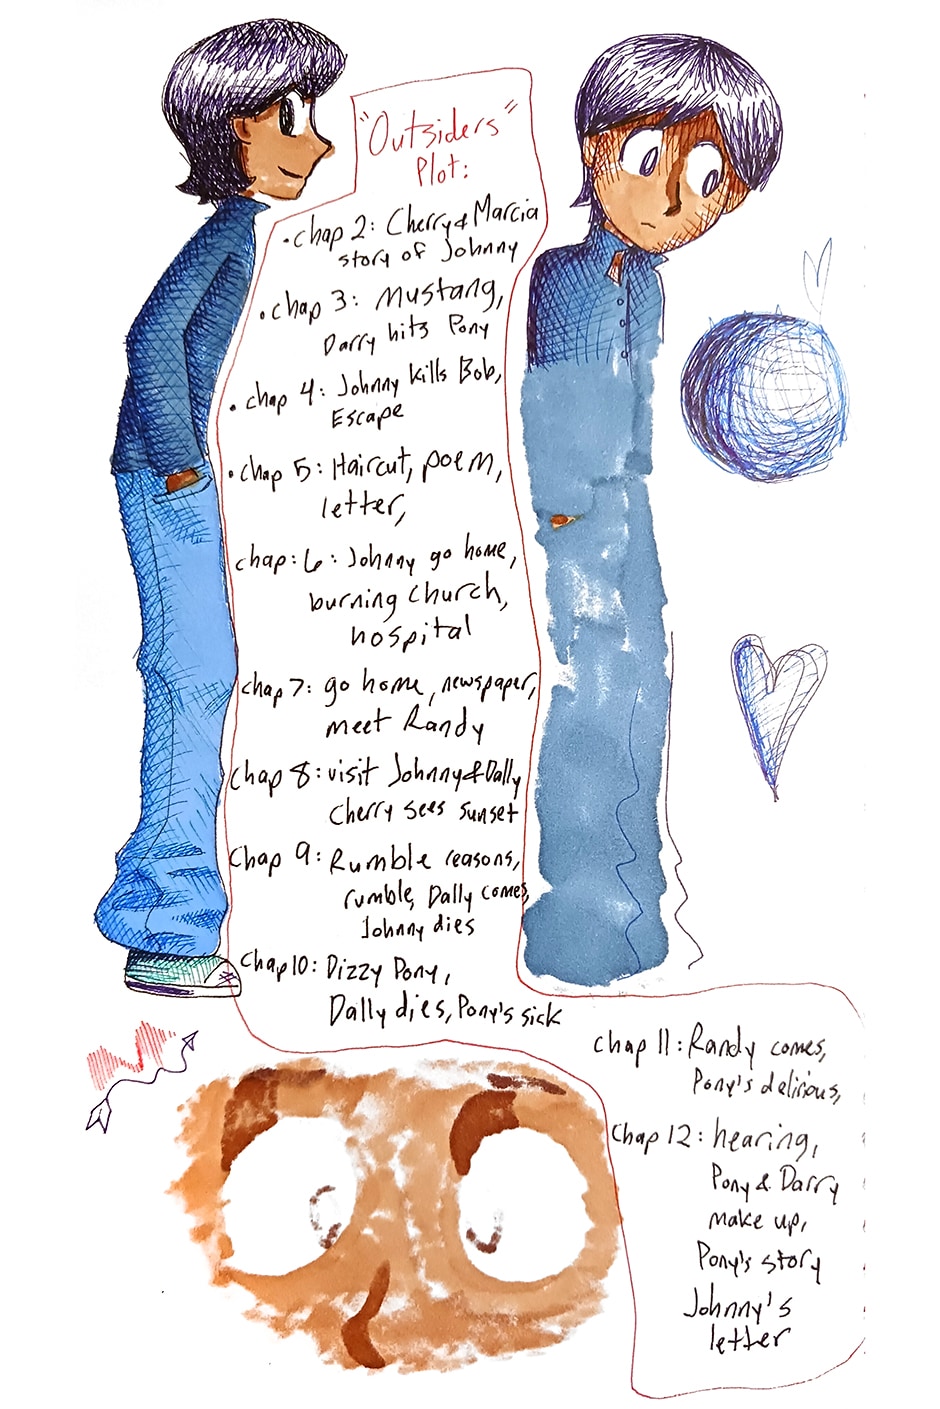 "Outsiders"
Plot:
• chap 2: Cherry & Marcia
story of Johnny
• chap 3: Mustang,
Darry hits Pony
• chap 4: Johnny kills Bob,
Escape
• chap 5: Haircut, poem,
letter,
chap: 6: Johnny go home,
burning church,
hospital
chap 7: go home, newspaper,
meet Randy
chap 8: visit Johnny & Dally
Cherry sees sunset
Chap 9: Rumble reasons,
rumble, Dally comes,
Johnny dies
Chap 10: Dizzy Pony,
Dally dies, Pony's sick
chap 11: Randy comes,
Pony's delirious,
Chap 12: hearing,
Pony & Darry
make up,
Pony's story
Johnny's
letter